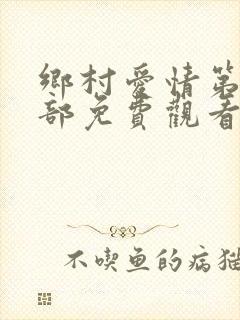 鄉村愛情第
部免費觀看
不喫鱼的病猫